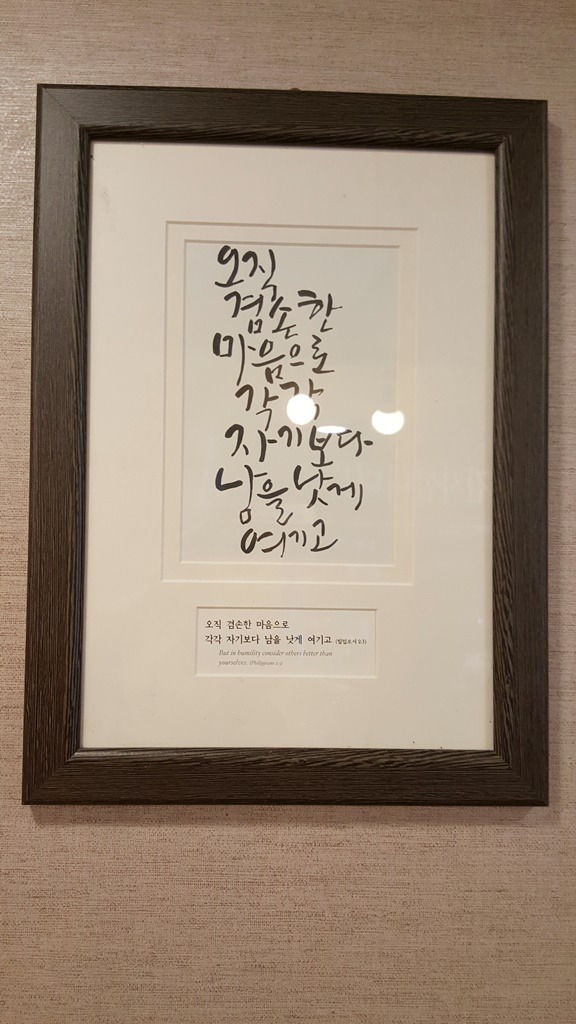 오직
겸손한
마음으로
각각
자기보다
남을 낫게
여기고
오직 겸손한 마음으로
각각 자기보다 남을 낫게 여기고 (빌립보서 2:3)
But in humility consider others better than
yourselves. (Philippians 2:3)